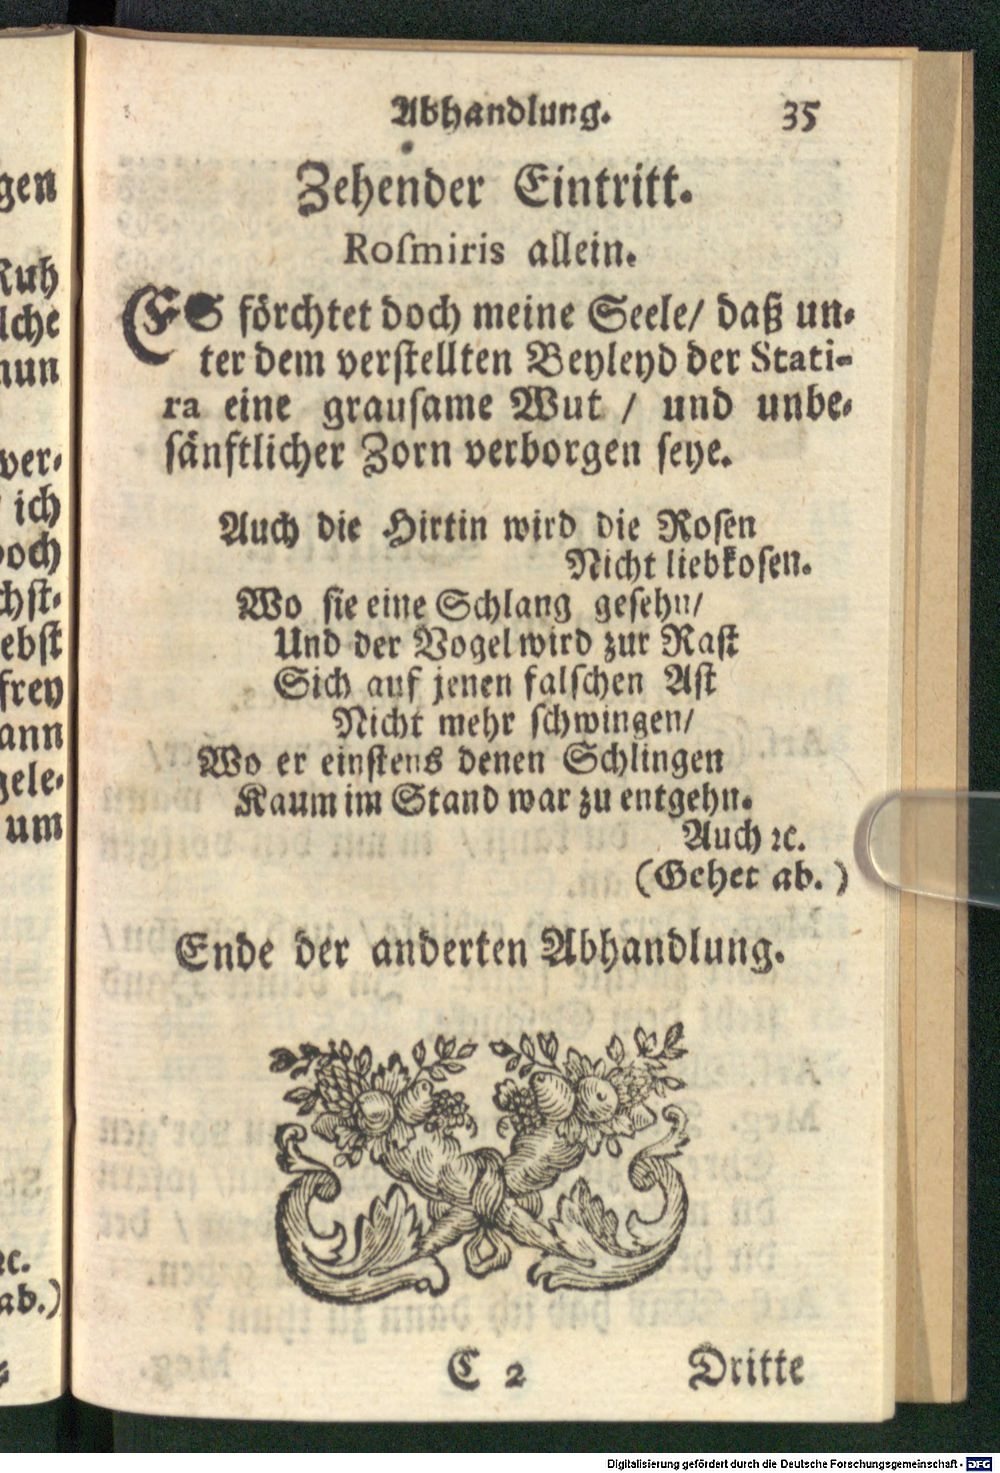 gen
Ruh
lche
nun
ver-
ich
doch
chst-
ebst
frey
ann
gele-
um
ꝛc.
ab.)
Abhandlung. 35
Zehender Eintritt.
Rosmiris allein.
ES förchtet doch meine Seele/ daß un-
ter dem verstellten Beyleyd der Stati-
ra eine grausame Wut / und unbe-
sänftlicher Zorn verborgen seye.
Auch die Hirtin wird die Rosen
Nicht liebkosen.
Wo sie eine Schlang gesehn/
Und der Vogel wird zur Rast
Sich auf jenen falschen Ast
Nicht mehr schwingen/
Wo er einstens denen Schlingen
Kaum im Stand war zu entgehn.
Auch ꝛc.
(Gehet ab.)
Ende der anderten Abhandlung.
C 2 Dritte
Digitalisierung gefördert durch die Deutsche Forschungsgemeinschaft - DFG